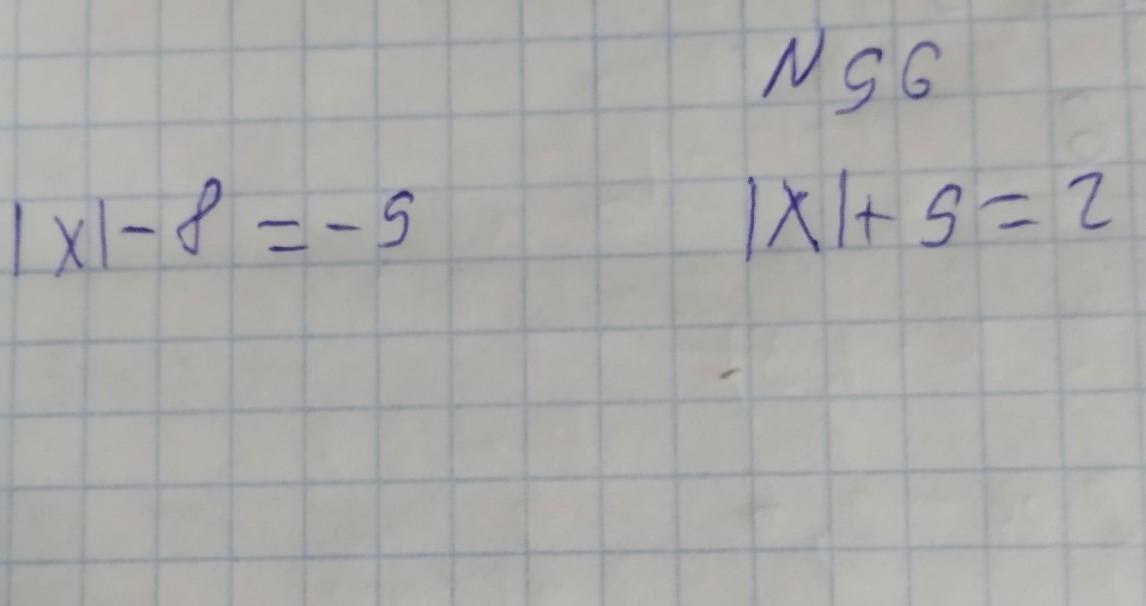 N 56
|x| - 8 = -5
|x| + 5 = 2